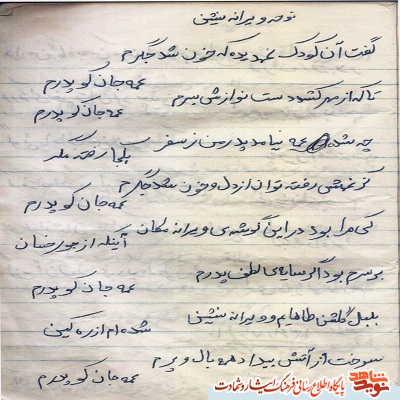 نوحه ویرانه نشین
گفت آن کودک غمدیده که خون شد جگرم
عمه جان کو پدرم
تا که از مهر کشد دست نوازش بسرم
عمه جان کو پدرم
چه شده عمه نیامد پدر من ز سفر
بکجا رفته مگر
کز غمش رفته توان از دل و خون شد جگرم
عمه جان کو پدرم
کی مرا بود در این گوشه‌ی ویرانه مکان
آنکه از جور خسان
بر سرم بود اگر سایه‌ی لطف پدرم
عمه جان کو پدرم
بلبل گلشن طاهایم و ویرانه نشین
شده‌ام از ره کین
سوخت از آتش بیداد همه بال و پرم
عمه جان کو پدرم
نوید شاهد
پایگاه اطلاع رسانی فرهنگ ایثار و شهادت